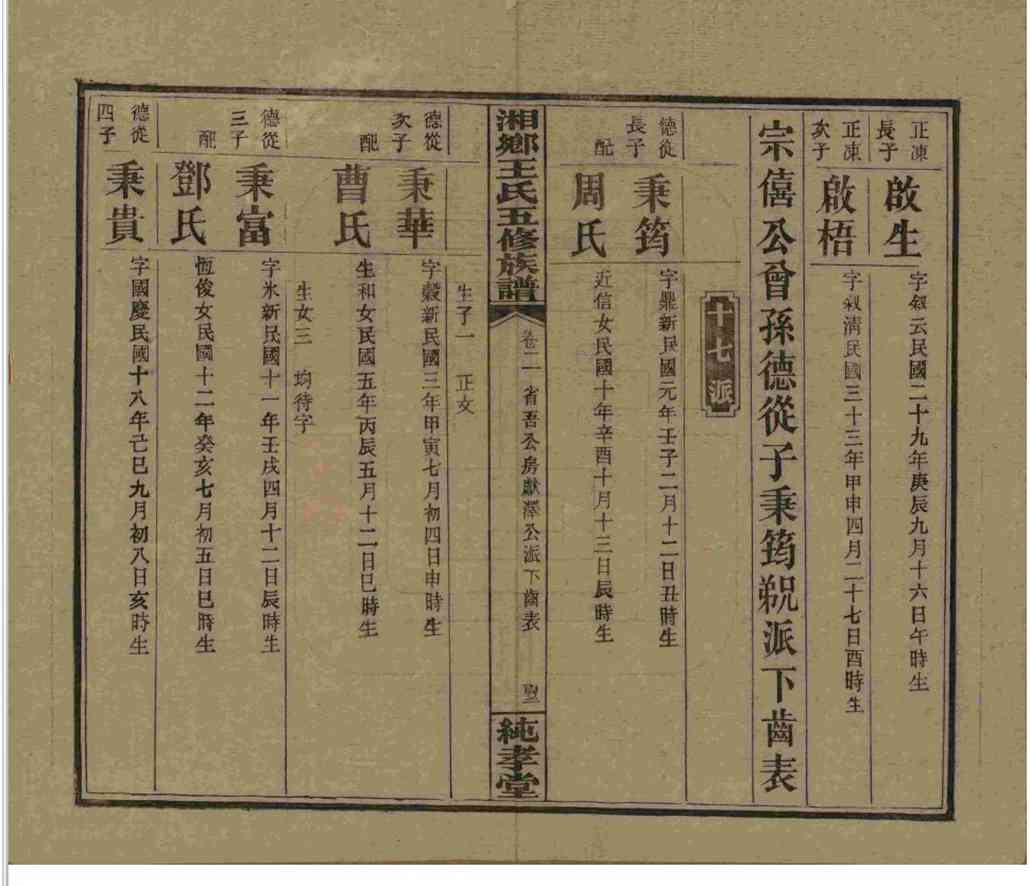 正凍
長子
啟生
字叙云民國二十九年庚辰九月十六日午時生
正凍
次子
啟梧
字叙清民國三十三年甲申四月二十七日酉時生
宗僖公曾孫德從子秉筠派下齒表
十七派
德從
長子
秉筠
字鼎新民國元年壬子二月十二日丑時生
配
周氏
近信女民國十年辛酉十月十三日辰時生
湘鄉王氏五修族譜
卷二
省吾公房獻澤公派下齒表
純孝堂
生子一 正文
德從
次子
秉華
字穀新民國三年甲寅七月初四日申時生
配
曹氏
生和女民國五年丙辰五月十二日巳時生
生女三 均待字
德從
三子
秉富
字氷新民國十一年壬戌四月十二日辰時生
配
鄧氏
恆俊女民國十二年癸亥七月初五日巳時生
德從
四子
秉貴
字國慶民國十八年己巳九月初八日亥時生